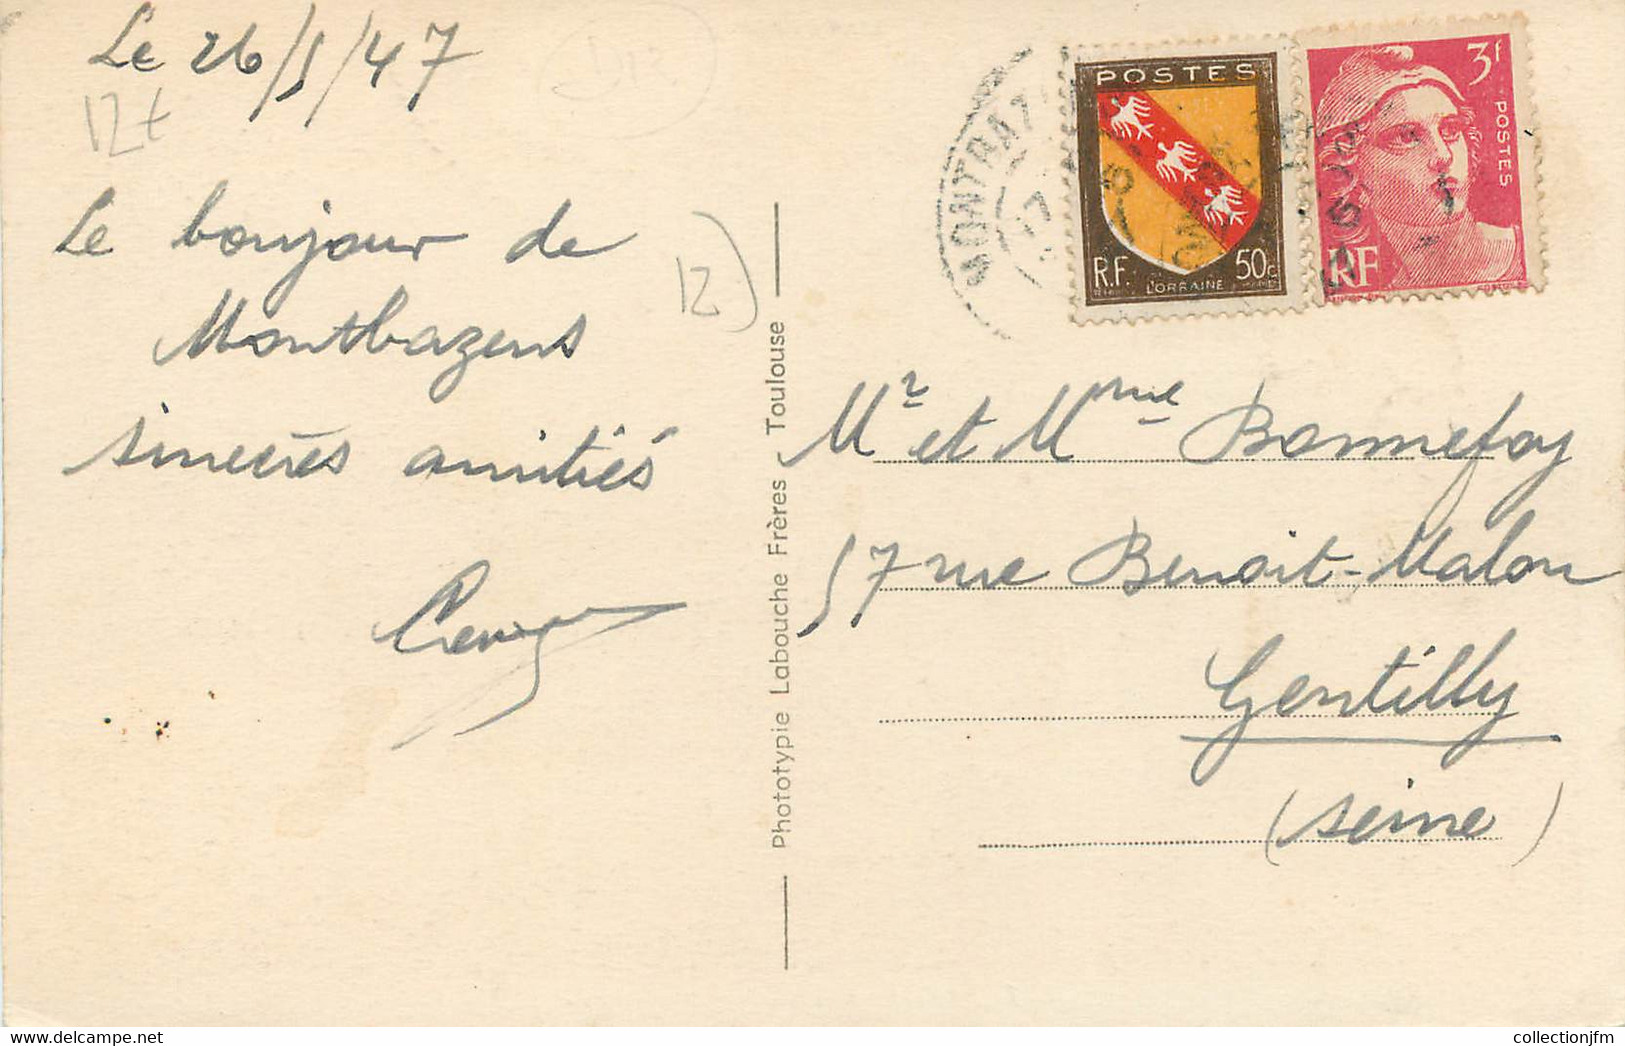 Le 26/5/47
12t
Le bonjour de
Montbazens
sincères amitiés
12
Phototypie Labouche Frères - Toulouse
POSTES
R.F.
50c
LORRAINE
3f
POSTES
RF
MONTBAZ
17
Mr et Mme Bonnefoy
57 rue Benoit-Malon
Gentilly
(Seine)
collectionjfm